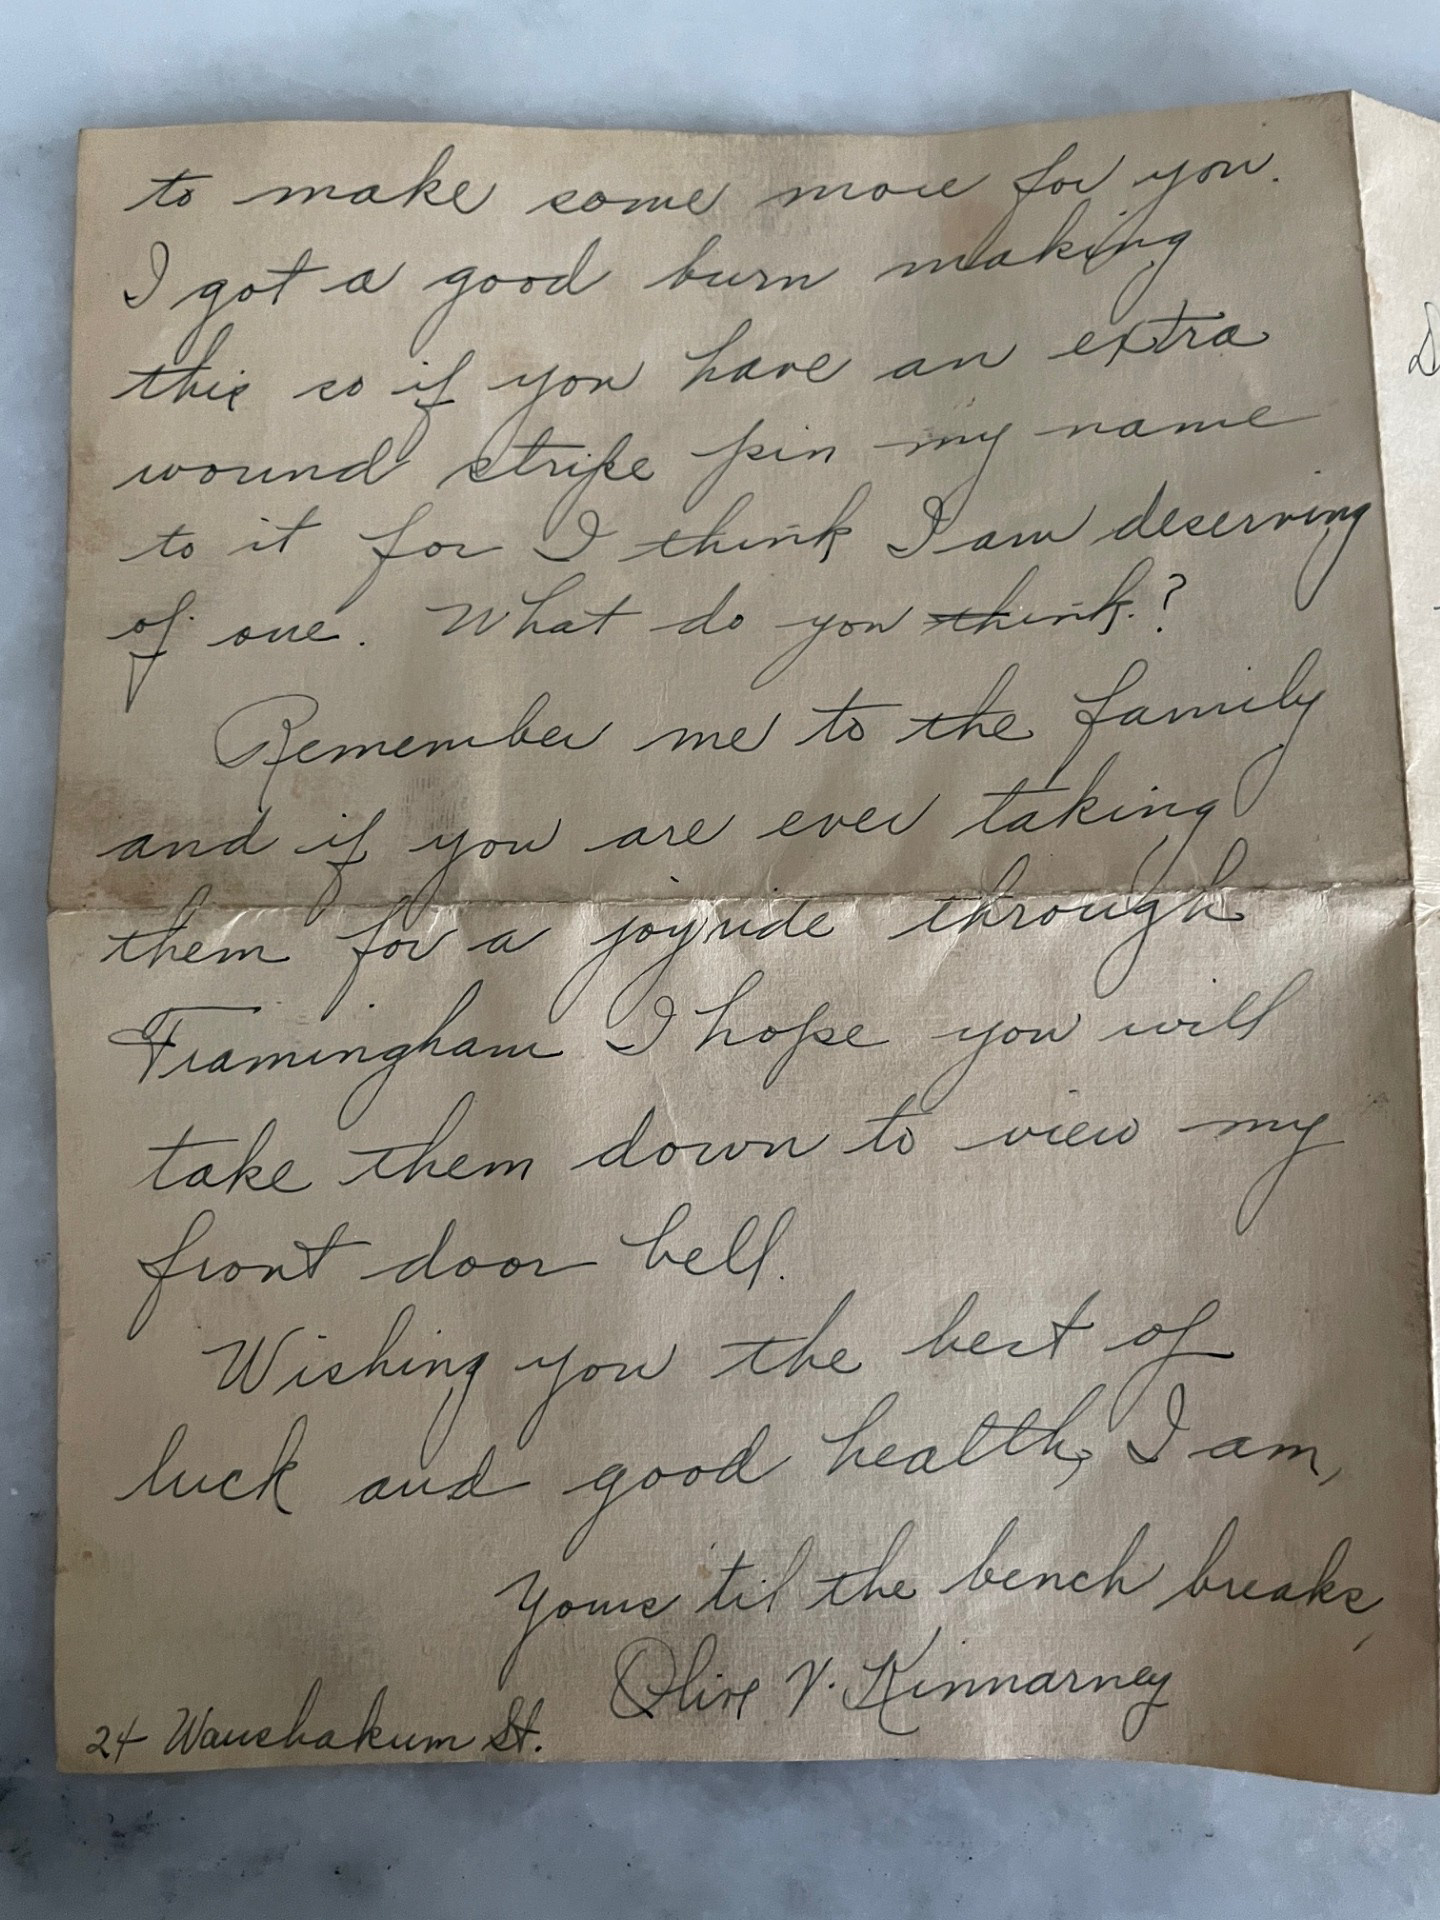 to make some more for you.
I got a good burn making
this so if you have an extra
wound stripe pin my name
to it for I think I am deserving
of one. What do you think.?
Remember me to the family
and if you are ever taking
them for a joyride through
Framingham I hope you will
take them down to view my
front door bell.
Wishing you the best of
luck and good health, I am,
Yours 'til the bench breaks,
Olive V. Kinnarney
24 Waushakum St.